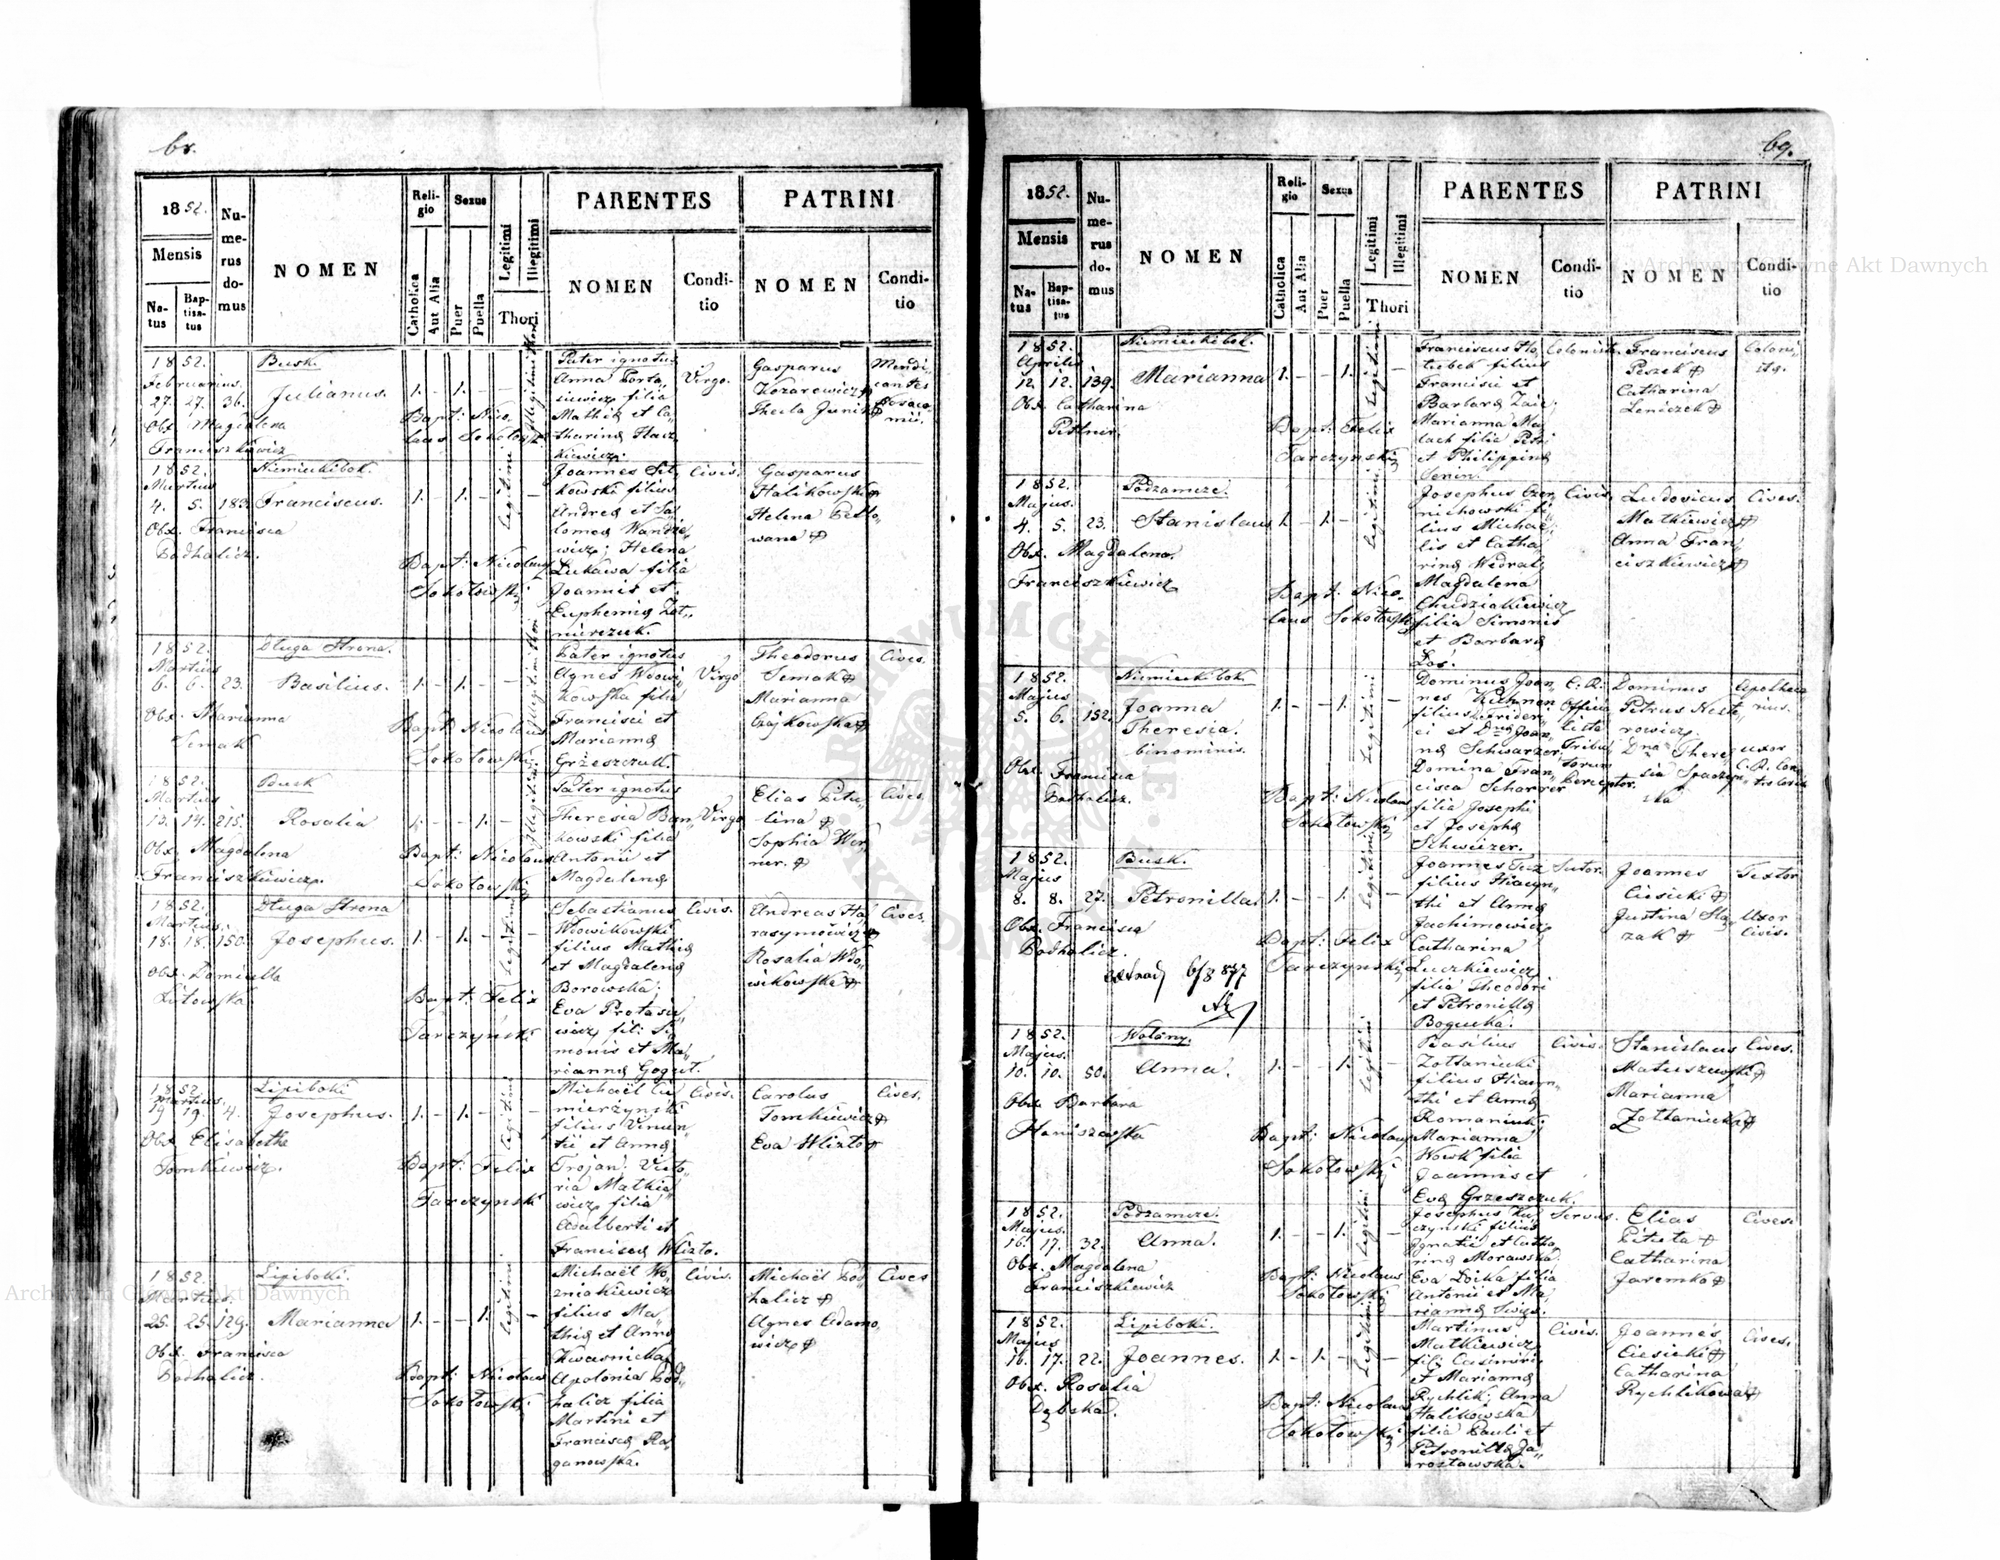 68.
1852.
Mensis
Na-
tus
Bap-
tisa-
tus
Nu-
me-
rus
do-
mus
NOMEN
Reli-
gio
Catholica
Aut Alia
Sexus
Puer
Puella
Legitimi
Illegitimi
Thori
PARENTES
NOMEN
Condi-
tio
PATRINI
NOMEN
Condi-
tio
1852.
Februarius.
27. 27. 36.
Obst. Magdalena
Franciszkiewicz
Busk.
Julianus.
1. - 1. - -
Bapt: Nico,
laus Sokołowski
Illegitimi thori
Pater ignotus
Anna
filia
Mathiæ et Ca,
tharinæ
kiewicz.
Virgo.
Gasparus
Kozarewicz
Thecla
Mendi,
cantes
1852.
Martius
4. 5. 183.
Obst. Francisca
Podhalicz.
Niemieckibok.
Franciscus.
1. - 1. - -
Bapt: Nicolaus
Sokołowski
legitimi
Joannes Sit,
kowski filius
Andreæ et Sa,
lomeæ
Helena
Lukawa filia
Joannis et
Euphemiæ
Civis.
Gasparus
Halikowski
Helena
1852.
Martius
6. 6. 23.
Obst. Marianna
Semak
Długa Strona.
Basilius.
1. - 1. - -
Bapt: Nicolaus
Sokołowski
Illegitimi thori
Pater ignotus
Agnes Wdowi,
kowska filia
Francisci et
Mariannæ
Grzeszczuk.
Virgo
Theodorus
Semak
Marianna
Gajkowska
Cives.
1852.
Martius
13. 14. 215.
Obst. Magdalena
Franciszkiewicz.
Busk
Rosalia
1. - - 1. -
Bapt: Nicolaus
Sokołowski
Illegitimi
Pater ignotus
Theresia Ban,
kowski filia
Antonii et
Magdalenæ
Virgo
Elias
Sophia Wer,
ner.
Cives.
1852.
Martius.
18. 18. 150.
Obst. Domicella
Litowska.
Długa Strona
Josephus.
1. - 1. - -
Bapt: Felix
Tarczyński
legitimi
Sebastianus
Wdowikowski
filius Mathiæ
et Magdalenæ
Borowska;
Eva Protasie,
wicz fil: Si,
monis et Ma,
riannæ
Civis.
Andreas Ha,
rasymowicz
Rosalia Wdo,
wikowska
Cives.
1852.
Martius.
19 19. 4.
Obst. Elisabetha
Tomkiewicz.
Lipiboki
Josephus.
1. - 1. - -
Bapt: Felix
Tarczynski
legitimi
Michaël Cu,
mierzynski
filius Vincen,
tii et Annæ
Trojan: Victo,
ria Mathie,
wicz filia
Adalberti et
Franciscæ Wlizło.
Civis.
Carolus
Tomkiewicz
Eva Wlizło
Cives.
1852.
Martius.
25. 25. 129.
Obst. Francisca
Podhalicz.
Lipiboki.
Marianna
1. - - 1. -
Bapt: Nicolaus
Sokołowski
legitimi
Michaël Wo,
zniakiewicz
filius Ma,
thiæ et Annæ
Kwasnicka;
Apolonia Pod,
halicz filia
Martini et
Franciscæ Ra,
ganowska.
Civis.
Michaël Pod,
halicz
Agnes Adamo,
wicz
Cives
69.
1852.
Mensis
Na-
tus
Bap-
tisa-
tus
Nu-
me-
rus
do-
mus
NOMEN
Reli-
gio
Catholica
Aut Alia
Sexus
Puer
Puella
Legitimi
Illegitimi
Thori
PARENTES
NOMEN
Condi-
tio
PATRINI
NOMEN
Condi-
tio
1852.
Aprilis
12. 12. 139.
Obst. Catharina
Niemieckibok.
Marianna
1. - - 1. -
Bapt: Felix
Tarczynski
legitimi
Franciscus
filius
Francisci et
Barbaræ
Marianna Ma,
lach filia Petri
et Philippinæ
Colonista.
Franciscus
Peszek
Catharina
Coloni,
1852.
Majus.
4. 5. 23.
Obst. Magdalena
Franciszkiewicz
Podzamcze.
Stanislaus
1. - 1. - -
Bapt: Nico,
laus Sokołowski
legitimi
Josephus Czer,
nichowski fi,
lius Michaë,
lis et Catha,
rinæ
Magdalena
Chudziakiewicz
filia Simonis
et Barbaræ
Łoś.
Civis.
Ludovicus
Matkiewicz
Anna Fran,
ciszkiewicz
Cives.
1852.
Majus
5. 6. 152.
Obst. Francisca
Podhalicz.
Niemieckibok.
Joanna
Theresia.
binominis.
1. - - 1. -
Bapt: Nicolaus
Sokołowski
Legitimi
Dominus Joan,
nes
filius Frideri,
ci et Dnæ Joan,
næ Schwarzer.
Domina Fran,
cisca Scharrer
filia Josephi
et Josephæ
Schweizer.
C. R.
Tribu
torum
Perceptor.
Dominus
Petrus Nesto,
rowicz.
Dna There,
sia
Apotheca,
rius.
uxor
C. R.
1852.
Majus
8. 8. 27.
Obst. Francisca
Podhalicz.
Busk.
Petronilla.
1. - - 1. -
Bapt: Felix
Tarczynski
legitimi
Joannes
filius Hiacyn,
thi et Annæ
Jachimowicz
Catharina
Luczkiewicz
filia Theodori
et Petronillæ
Bogucka.
Sutor.
Joannes
Ciesicki
Justina
Textor
Uxor
Civis.
1852.
Majus.
10. 10. 50.
Obst. Barbara
Staniszewska
Wolany.
Anna.
1. - - 1. -
Bapt: Nicolaus
Sokołowski
legitimi
Basilius
Żołtaniecki
filius Hiacyn,
thi et Annæ
Romaniuk;
Marianna
Wowk filia
Joannis et
Evæ Grzeszczuk.
Civis.
Stanislaus
Matuszewski
Marianna
Żołtaniecka
Cives.
1852.
Majus.
16. 17. 32.
Obst. Magdalena
Franciszkiewicz
Podzamcze.
Anna.
1. - - 1. -
Bapt: Nicolaus
Sokołowski
legitimi
Josephus Ku,
czynski filius
Ignatii et Catha,
rinæ Morawska
Eva Doika filia
Antonii et Ma,
riannæ
Servus.
Elias
Catharina
Jaremko
Cives.
1852.
Majus
16. 17. 22.
Obst. Rosalia
Dębska.
Lipiboki.
Joannes.
1. - 1. - -
Bapt: Nicolaus
Sokołowski
Legitimi
Martinus
Matkiewicz
fil: Casimiri
et Mariannæ
Rychlik; Anna
Halikowska
filia Pauli et
Petronillæ Ja,
rosławska.
Civis.
Joannes
Ciesicki
Catharina
Rychlikowa
Cives.
ARCHIWUM GŁÓWNE AKT DAWNYCH
Archiwum Główne Akt Dawnych
Archiwum Główne Akt Dawnych